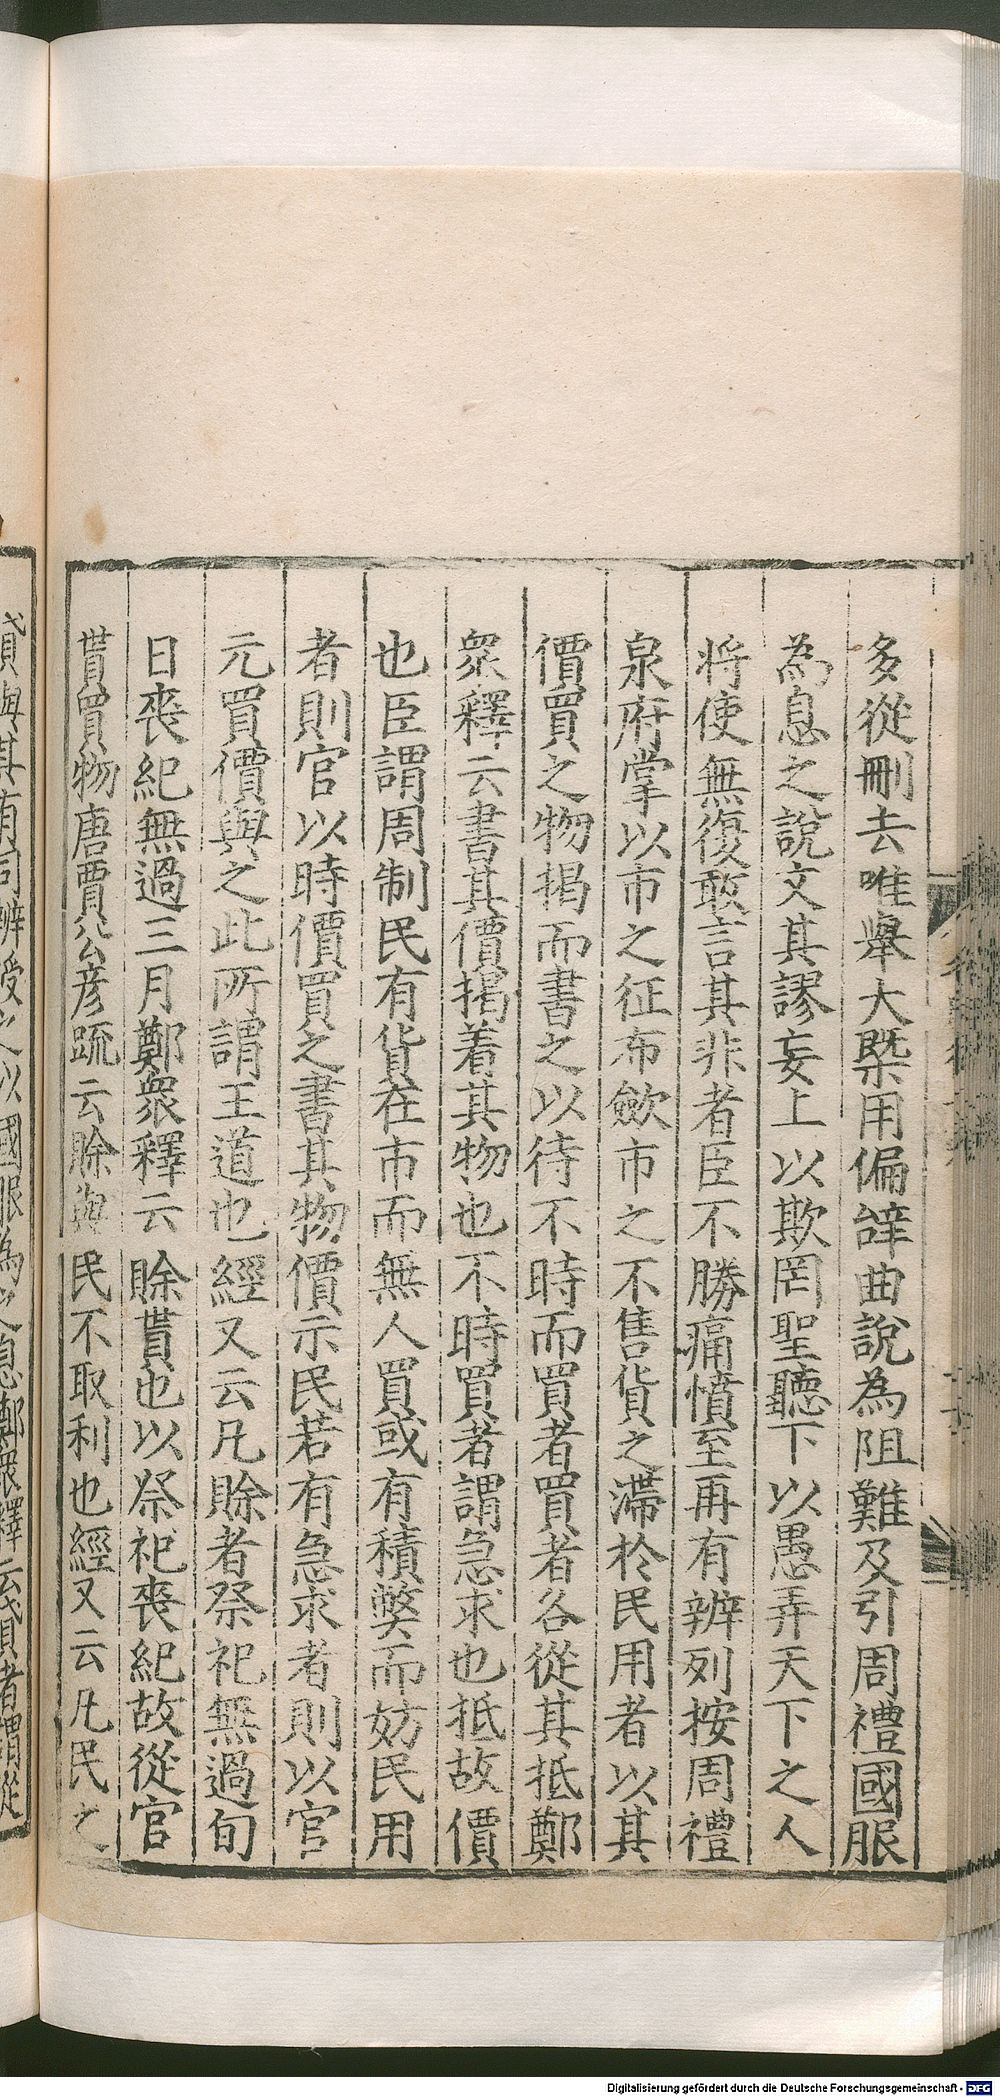 多從刪去唯舉大槩用偏辭曲說為阻難及引周禮國服
為息之說文其謬妄上以欺罔聖聽下以愚弄天下之人
将使無復敢言其非者臣不勝痛憤至再有辨列按周禮
泉府掌以市之征布歛市之不售貨之滯於民用者以其
價買之物揭而書之以待不時而買者買者各從其抵鄭
衆釋云書其價揭着其物也不時買者謂急求也抵故價
也臣謂周制民有貨在市而無人買或有積弊而妨民用
者則官以時價買之書其物價示民若有急求者則以官
元買價與之此所謂王道也經又云凡賒者祭祀無過旬
日喪紀無過三月鄭衆釋云賒貰也以祭祀喪紀故從官
貰買物唐賈公彦疏云賒與民不取利也經又云凡民之
貸與其有司辨授之以國服為之息鄭衆釋云貸者謂從
Digitalisierung gefördert durch die Deutsche Forschungsgemeinschaft - DFG